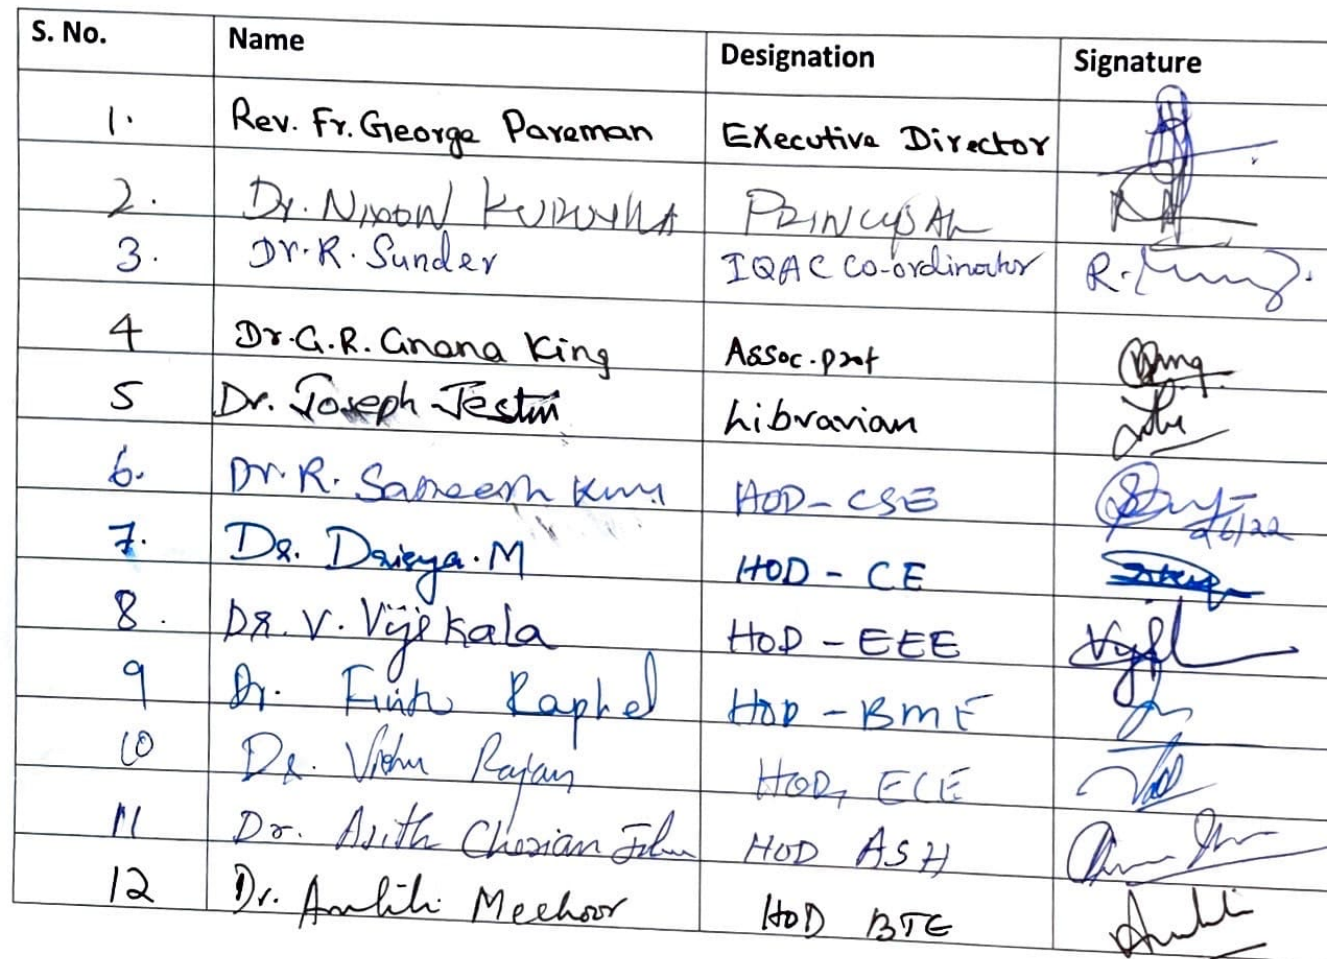 S. No. Name Designation Signature
1. Rev. Fr. George Pareman Executive Director
2. Dr. NIXON KURUVILA PRINCIPAL
3. Dr. R. Sunder IQAC Co-ordinator R.
4 Dr. G.R. Gnana King Assoc. prof
5 Dr. Joseph Jestin Librarian
6. Dr. R. HOD - CSE
7. Dr. Drisya. M HOD - CE
8. Dr. V. Vijikala HOD - EEE
9 Dr. Finto Raphel HOD - BME
10 Dr. Vishnu Rajan HOD, ECE
11 Dr. Ajith Cherian John HOD ASH
12 Dr. Ambili Mechoor HOD BTE